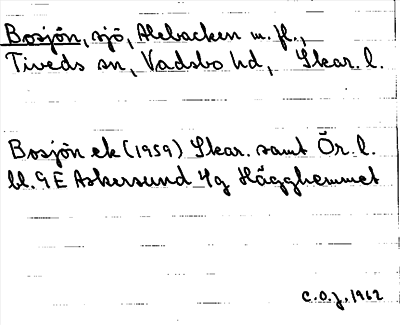 Bosjön, sjö, Alebacken m. fl.,
Tiveds sn, Vadsbo hd, Skar. l.
Bosjön ek (1959) Skar. samt Ör. l.
bl. 9E Askersund 4g Hägghemmet
C.O.J., 1962